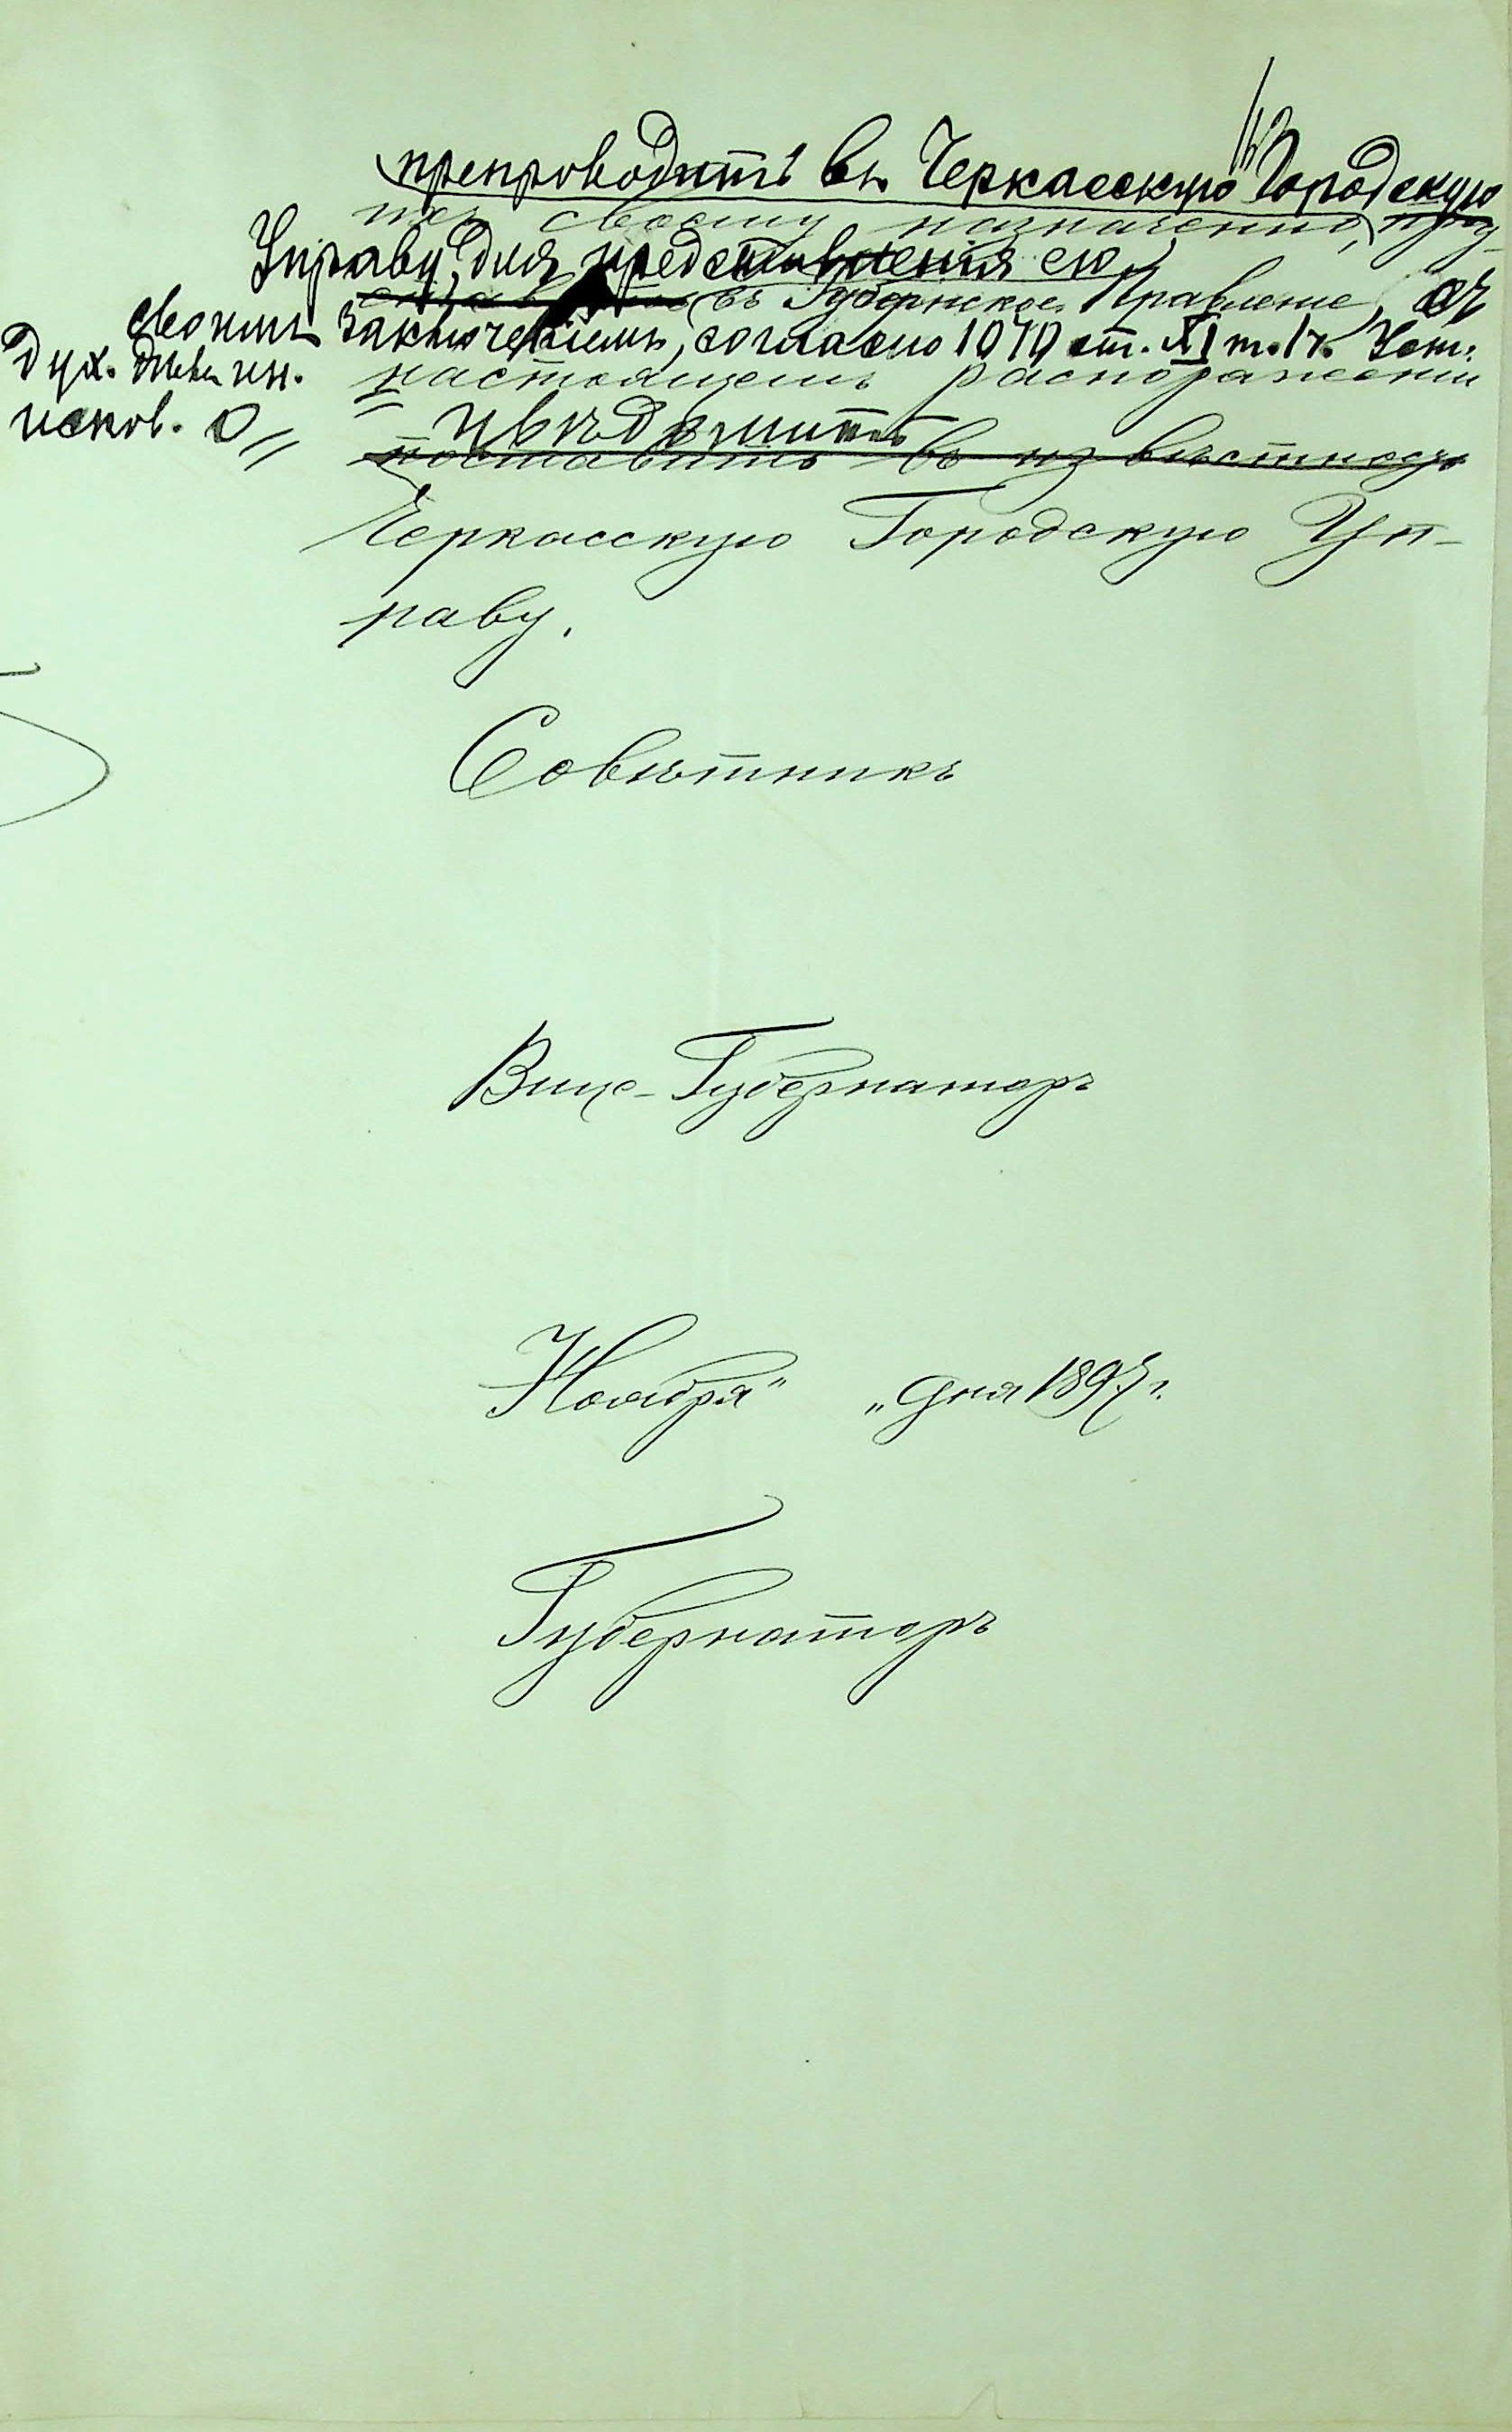 препроводить въ Черкасскую Городскую
по своему назначению, пред-
Управу, для представленія ею
въ Губернское Правленіе, съ
своимъ заключеніемъ, согласно 1070 ст. XI т. 1 ч. Уст.
Дух. Дѣлъ ин.
настоящемъ распоряженіи
исков. О
увѣдомить
поставить въ извѣстность
Черкасскую Городскую Уп-
раву.
Совѣтникъ
Вице-Губернаторъ
Ноября " " дня 1897 г.
Губернаторъ